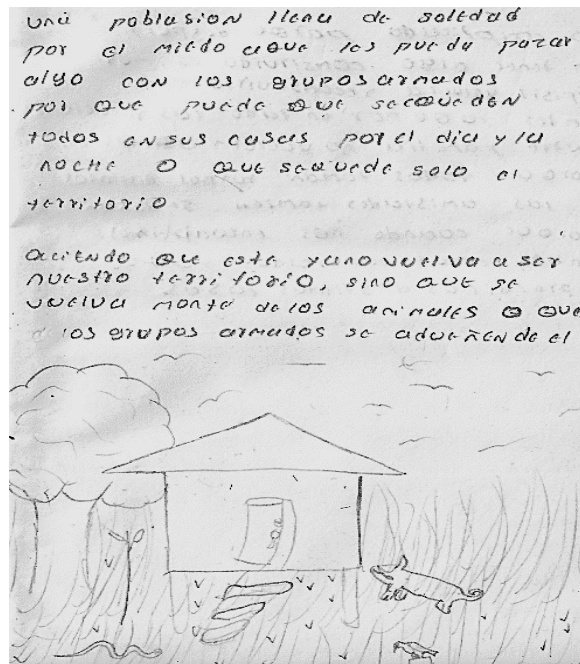 una poblasion llena de soledad
por el miedo aque les pueda pazar
algo con los grupos armados
por que puede que secqueden
todos en sus casas por el dia y la
noche o que sequede solo el
territorio
aciendo que este yano vuelva a ser
nuestro territorio, sino que se
vuelva monte de los animales o que
los grupos armados se adueñen de el